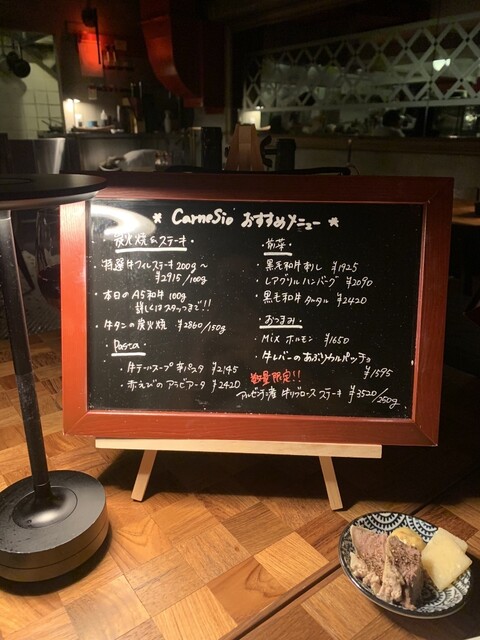 * CarneSio おすすめメニュー *
炭火焼&ステーキ・
・特選牛フィレステーキ 200g~
¥2915/100g
・本日のA5和牛 100g
詳しくはスタッフまで!!
・牛タンの炭火焼 ¥2860/150g
・Pasta・
・牛テールスープ パスタ ¥2145
・赤えびのアラビアータ ¥2420
・前菜・
・黒毛和牛刺し ¥1925
・レアグリルハンバーグ ¥2090
・黒毛和牛のタータル ¥2420
・おつまみ・
・Mix ホルモン ¥1650
・牛レバーのあぶりカルパッチョ
¥1595
数量限定!!
アルゼンチン産 牛リブロースステーキ ¥3520/250g